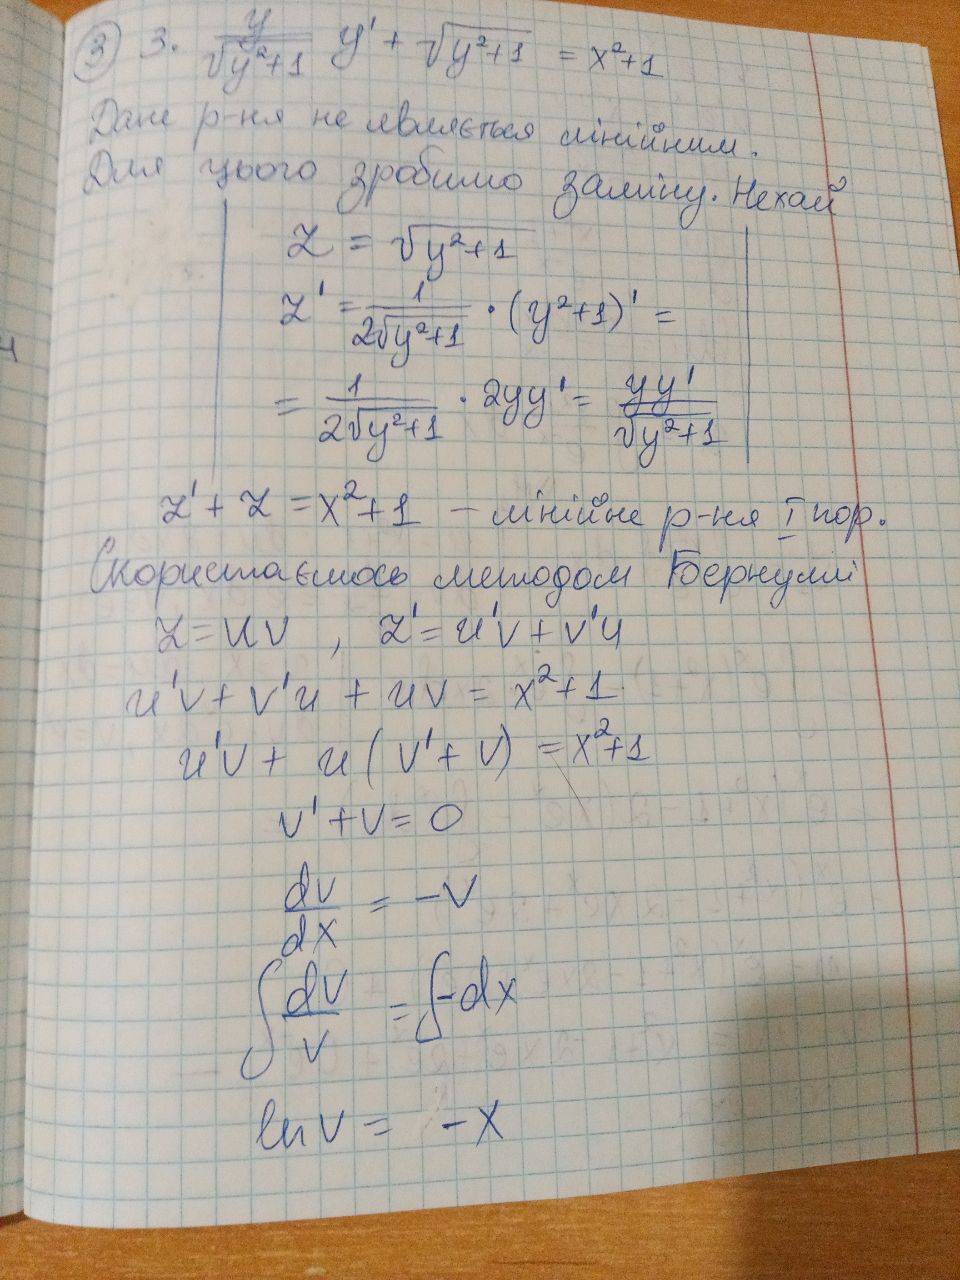 ③ 3. y/√(y²+1) y' + √(y²+1) = x²+1
Дане р-ня не являється лінійним.
Для цього зробимо заміну. Нехай
z = √(y²+1)
z' = 1/(2√(y²+1)) · (y²+1)' =
= 1/(2√(y²+1)) · 2yy' = yy'/√(y²+1)
z' + z = x²+1 – лінійне р-ня I пор.
Скористаємось методом Бернуллі
z = uv , z' = u'v + v'u
u'v + v'u + uv = x²+1
u'v + u(v'+v) = x²+1
v' + v = 0
dv/dx = -v
∫ dv/v = ∫ -dx
ln v = -x